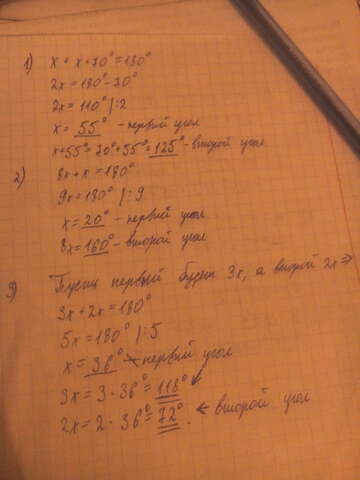 1) x + x + 70° = 180°
2x = 180° - 70°
2x = 110° |:2
x = 55° - первый угол
x + 55° = 70° + 55° = 125° - второй угол
2) 8x + x = 180°
9x = 180° |:9
x = 20° - первый угол
8x = 160° - второй угол
3) Пусть первый будет 3x, а второй 2x =>
3x + 2x = 180°
5x = 180° |:5
x = 36° первый угол
3x = 3 · 36° = 118°
2x = 2 · 36° = 72° ← второй угол